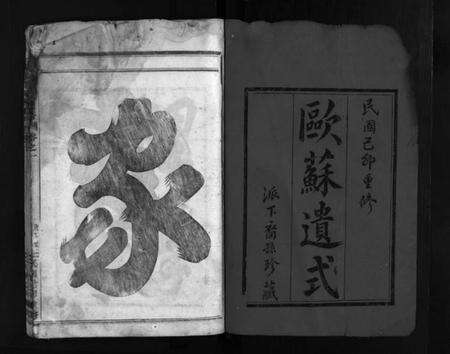 民國己卯重修
歐蘇遺式
派下裔孫珍藏
家